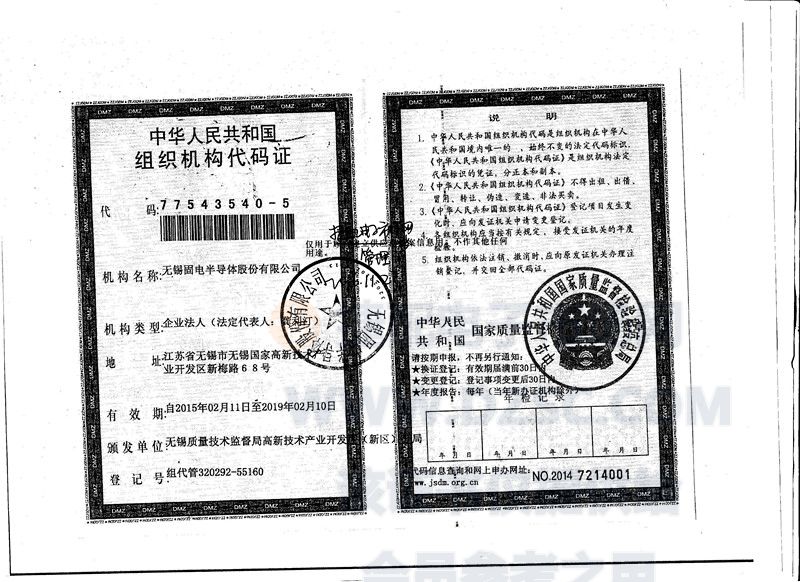 中华人民共和国
组织机构代码证
代 码:77543540-5
机构名称:无锡固电半导体股份有限公司
机构类型:企业法人（法定代表人：龚利汀）
地 址:江苏省无锡市无锡国家高新技术
业开发区新梅路68号
有 效 期:自2015年02月11日至2019年02月10日
颁发单位:无锡质量技术监督局高新技术产业开发区（新区）局
登 记 号:组代管320292-55160
仅用于
信息用，不作其他任何
用途。
说 明
1. 中华人民共和国组织机构代码是组织机构在中华人
民共和国境内唯一的、始终不变的法定代码标识，
《中华人民共和国组织机构代码证》是组织机构法定
代码标识的凭证，分正本和副本。
2. 《中华人民共和国组织机构代码证》不得出租、出借、
冒用、转让、伪造、变造、非法买卖。
3. 《中华人民共和国组织机构代码证》登记项目发生变
化时，应向发证机关申请变更登记。
4. 各组织机构应当按有关规定，接受发证机关的年度
检验。
5. 组织机构依法注销、撤消时，应向原发证机关办理
注销登记，并交回全部代码证。
中华人民
共和国
国家质量监督
中华人民共和国国家质量监督检验检疫总局
请按期申报，不再另行通知：
★换证登记：有效期届满前30日
★变更登记：登记事项变更后30日
★年度报告：每年（当年新办证机构除外）
年检记录
年 月 日 年 月 日 年 月 日 年 月 日
代码信息查询和网上申办网址：
www.jsdm.org.cn
NO.2014 7214001
WWW.DZSC.COM